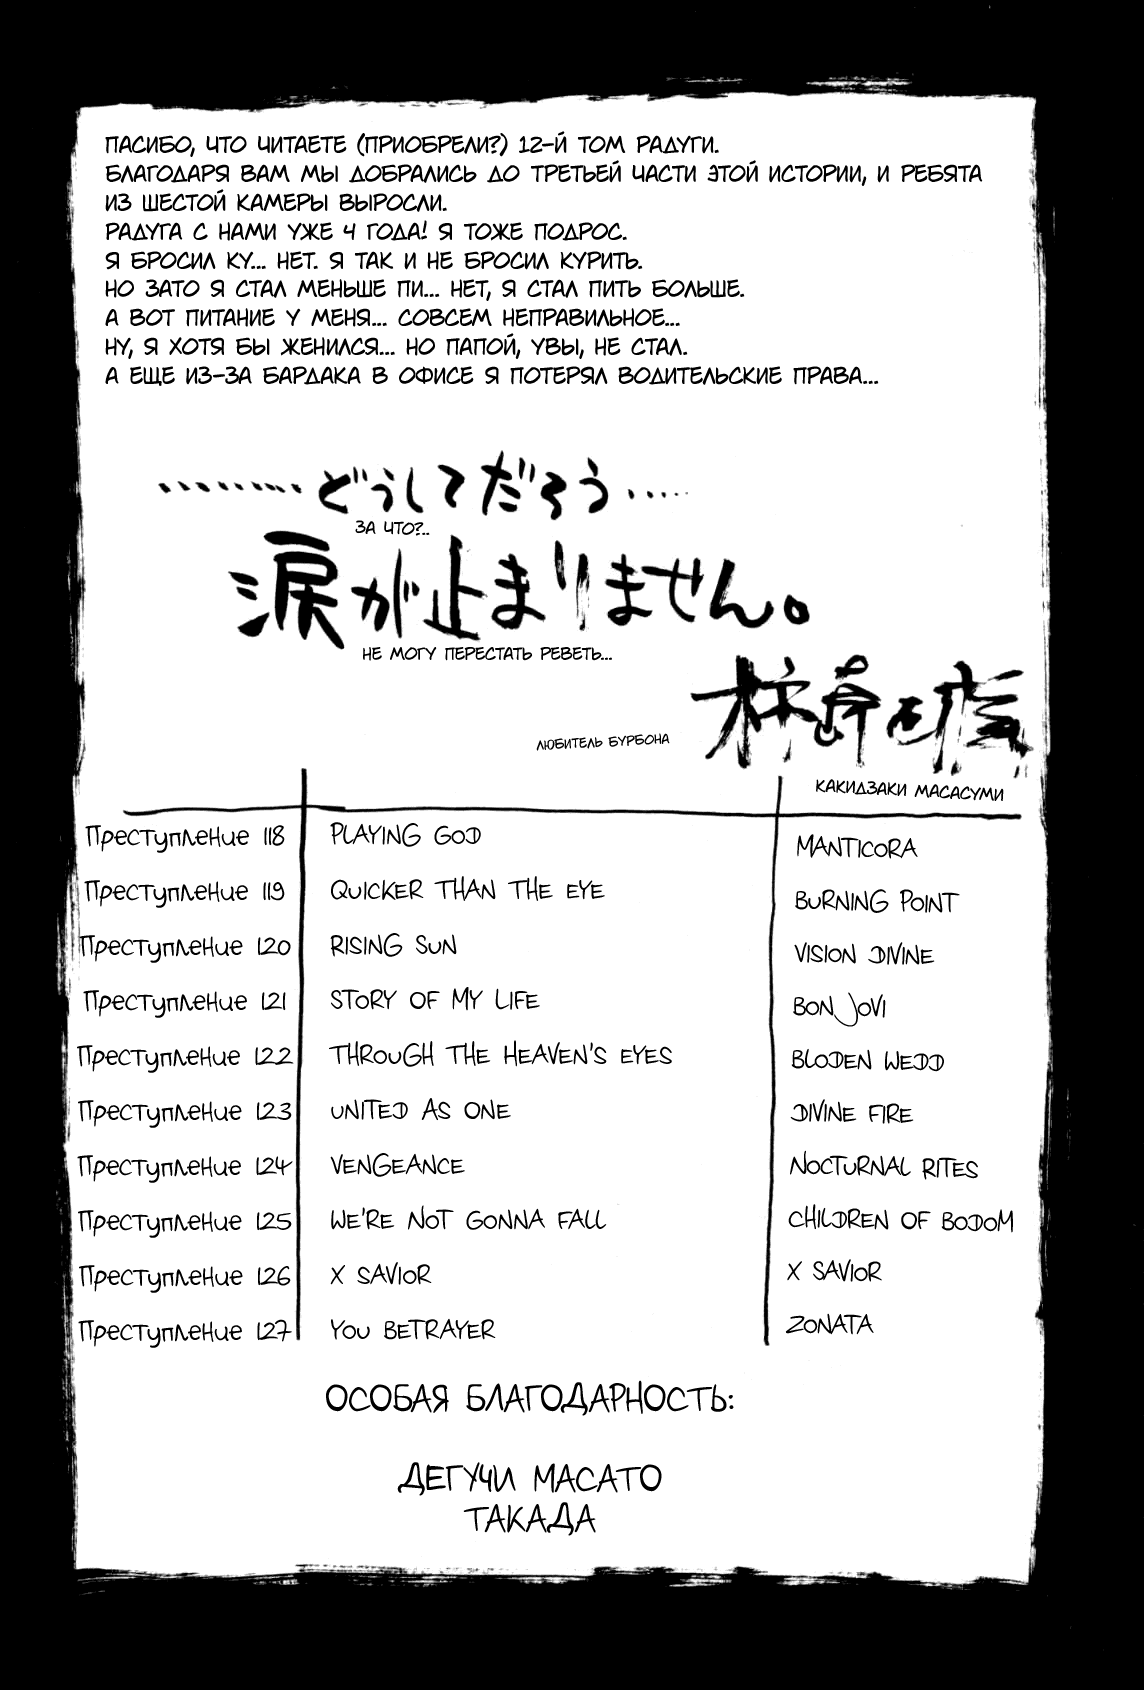 ПАСИБО, ЧТО ЧИТАЕТЕ (ПРИОБРЕЛИ?) 12-Й ТОМ РАДУГИ.
БЛАГОДАРЯ ВАМ МЫ ДОБРАЛИСЬ ДО ТРЕТЬЕЙ ЧАСТИ ЭТОЙ ИСТОРИИ, И РЕБЯТА
ИЗ ШЕСТОЙ КАМЕРЫ ВЫРОСЛИ.
РАДУГА С НАМИ УЖЕ 4 ГОДА! Я ТОЖЕ ПОДРОС.
Я БРОСИЛ КУ... НЕТ. Я ТАК И НЕ БРОСИЛ КУРИТЬ.
НО ЗАТО Я СТАЛ МЕНЬШЕ ПИ... НЕТ, Я СТАЛ ПИТЬ БОЛЬШЕ.
А ВОТ ПИТАНИЕ У МЕНЯ... СОВСЕМ НЕПРАВИЛЬНОЕ...
НУ, Я ХОТЯ БЫ ЖЕНИЛСЯ... НО ПАПОЙ, УВЫ, НЕ СТАЛ.
А ЕЩЕ ИЗ-ЗА БАРДАКА В ОФИСЕ Я ПОТЕРЯЛ ВОДИТЕЛЬСКИЕ ПРАВА...
………どうしてだろう……
ЗА ЧТО?..
涙が止まりません。
НЕ МОГУ ПЕРЕСТАТЬ РЕВЕТЬ...
柿崎正澄
ЛЮБИТЕЛЬ БУРБОНА
КАКИДЗАКИ МАСАСУМИ
Преступление 118 PLAYING GOD MANTICORA
Преступление 119 QUICKER THAN THE EYE BURNING POINT
Преступление 120 RISING SUN VISION DIVINE
Преступление 121 STORY OF MY LIFE BON JOVI
Преступление 122 THROUGH THE HEAVEN'S EYES BLODEN WEDD
Преступление 123 UNITED AS ONE DIVINE FIRE
Преступление 124 VENGEANCE NOCTURNAL RITES
Преступление 125 WE'RE NOT GONNA FALL CHILDREN OF BODOM
Преступление 126 X SAVIOR X SAVIOR
Преступление 127 YOU BETRAYER ZONATA
ОСОБАЯ БЛАГОДАРНОСТЬ:
ДЕГУЧИ МАСАТО
ТАКАДА